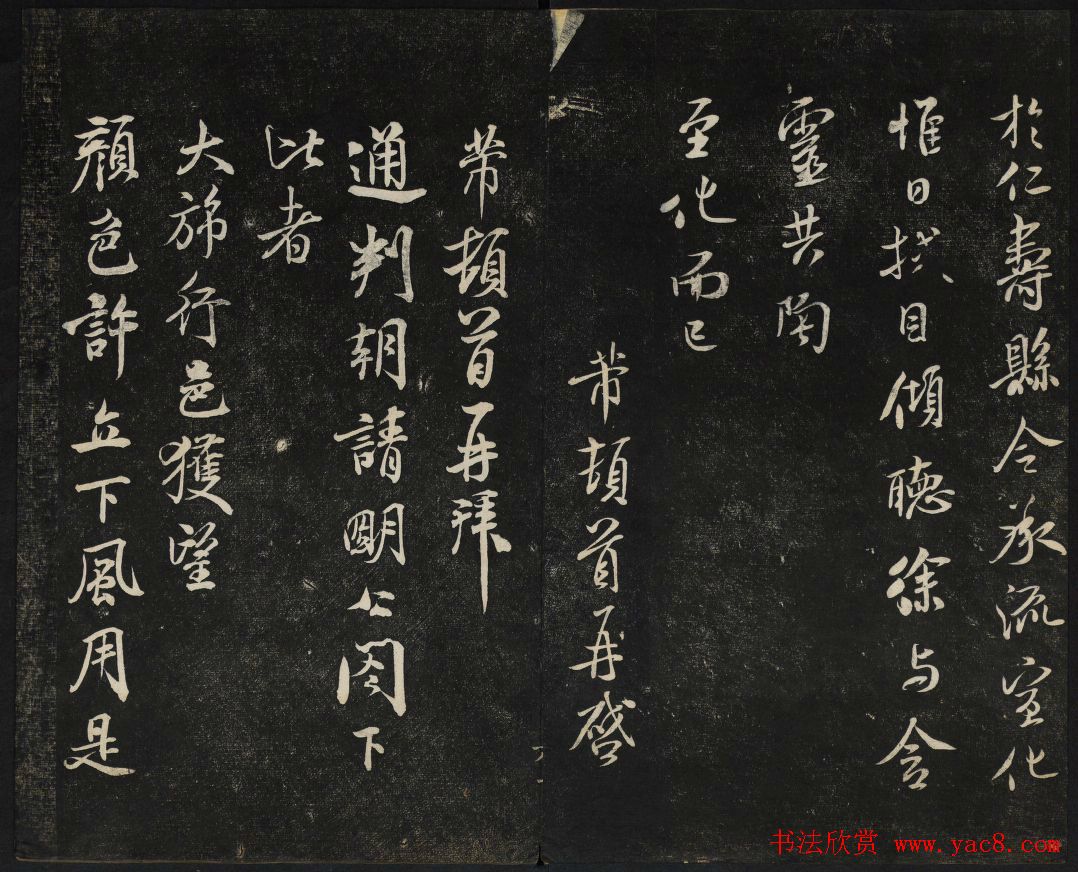 於仁壽縣令承流宣化
惟日拭目傾聽徐与含
靈共陶
至化而已
芾頓首再啓
芾頓首再拜
通判朝請明公閤下
比者
大旆行邑獲望
顔色許立下風用是
书法欣赏 www.yac8.com